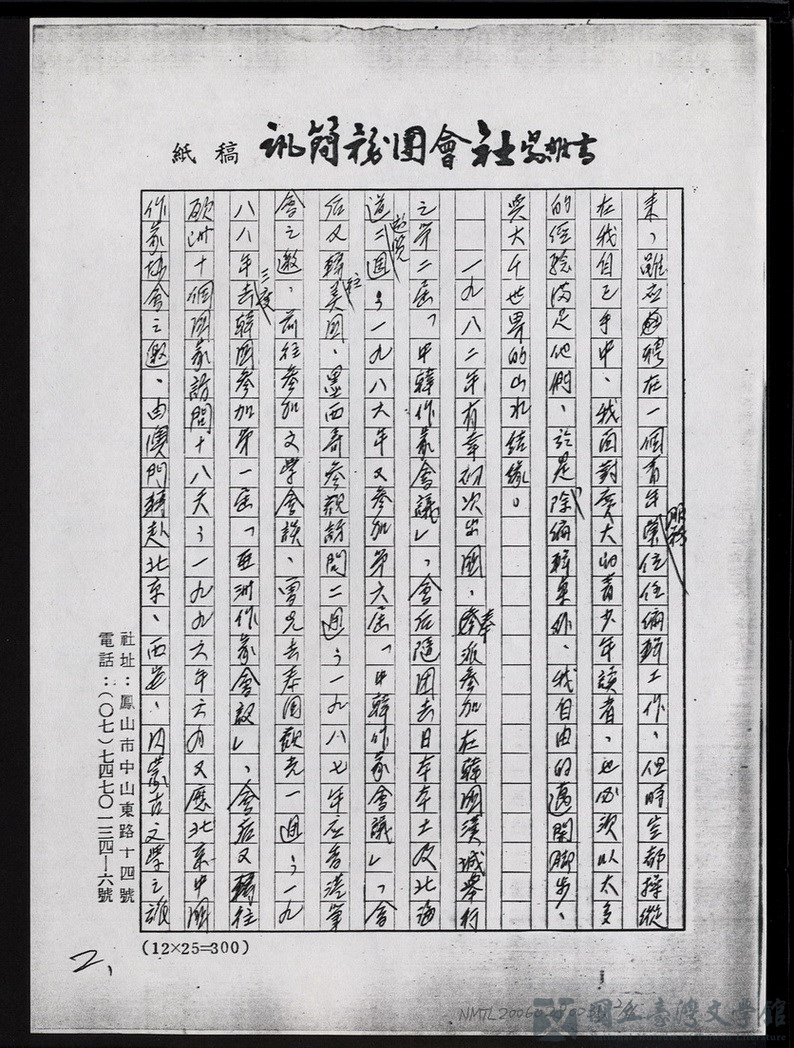 稿紙
來,雖應聘在一個青年朋務單位任編輯工作,但時空都操縱
在我自己手中,我面對廣大的青少年讀者,也必須以太多
的經驗滿足他們,於是除編輯桌外,我自由的邁開腳步,
與大千世界的山水結緣。
一九八二年有幸初次出國,奉派參加在韓國漢城舉行
之第二屆「中韓作家會議」,會后隨團去日本本土及北海
道遊覽二週;一九八六年又參加第六屆「中韓作家會議」,會
后又轉往美國、墨西哥參觀訪問二週;一九八七年應香港筆
會之邀,前往參加文學會談,會兄去泰國觀光一週;一九
八八年三度去韓國參加第一屆「亞洲作家會議」,會后又轉往
歐洲十個國家訪問十八天;一九九六年六月又應北京中國
作家協會之邀,由澳門轉赴北京、西安、內蒙古文學之旅
社址:鳳山市中山東路十四號
電話:(〇七)七四七〇一三四—六號
(12×25=300)
2,
國立臺灣文學館
National Museum of Taiwan Literature